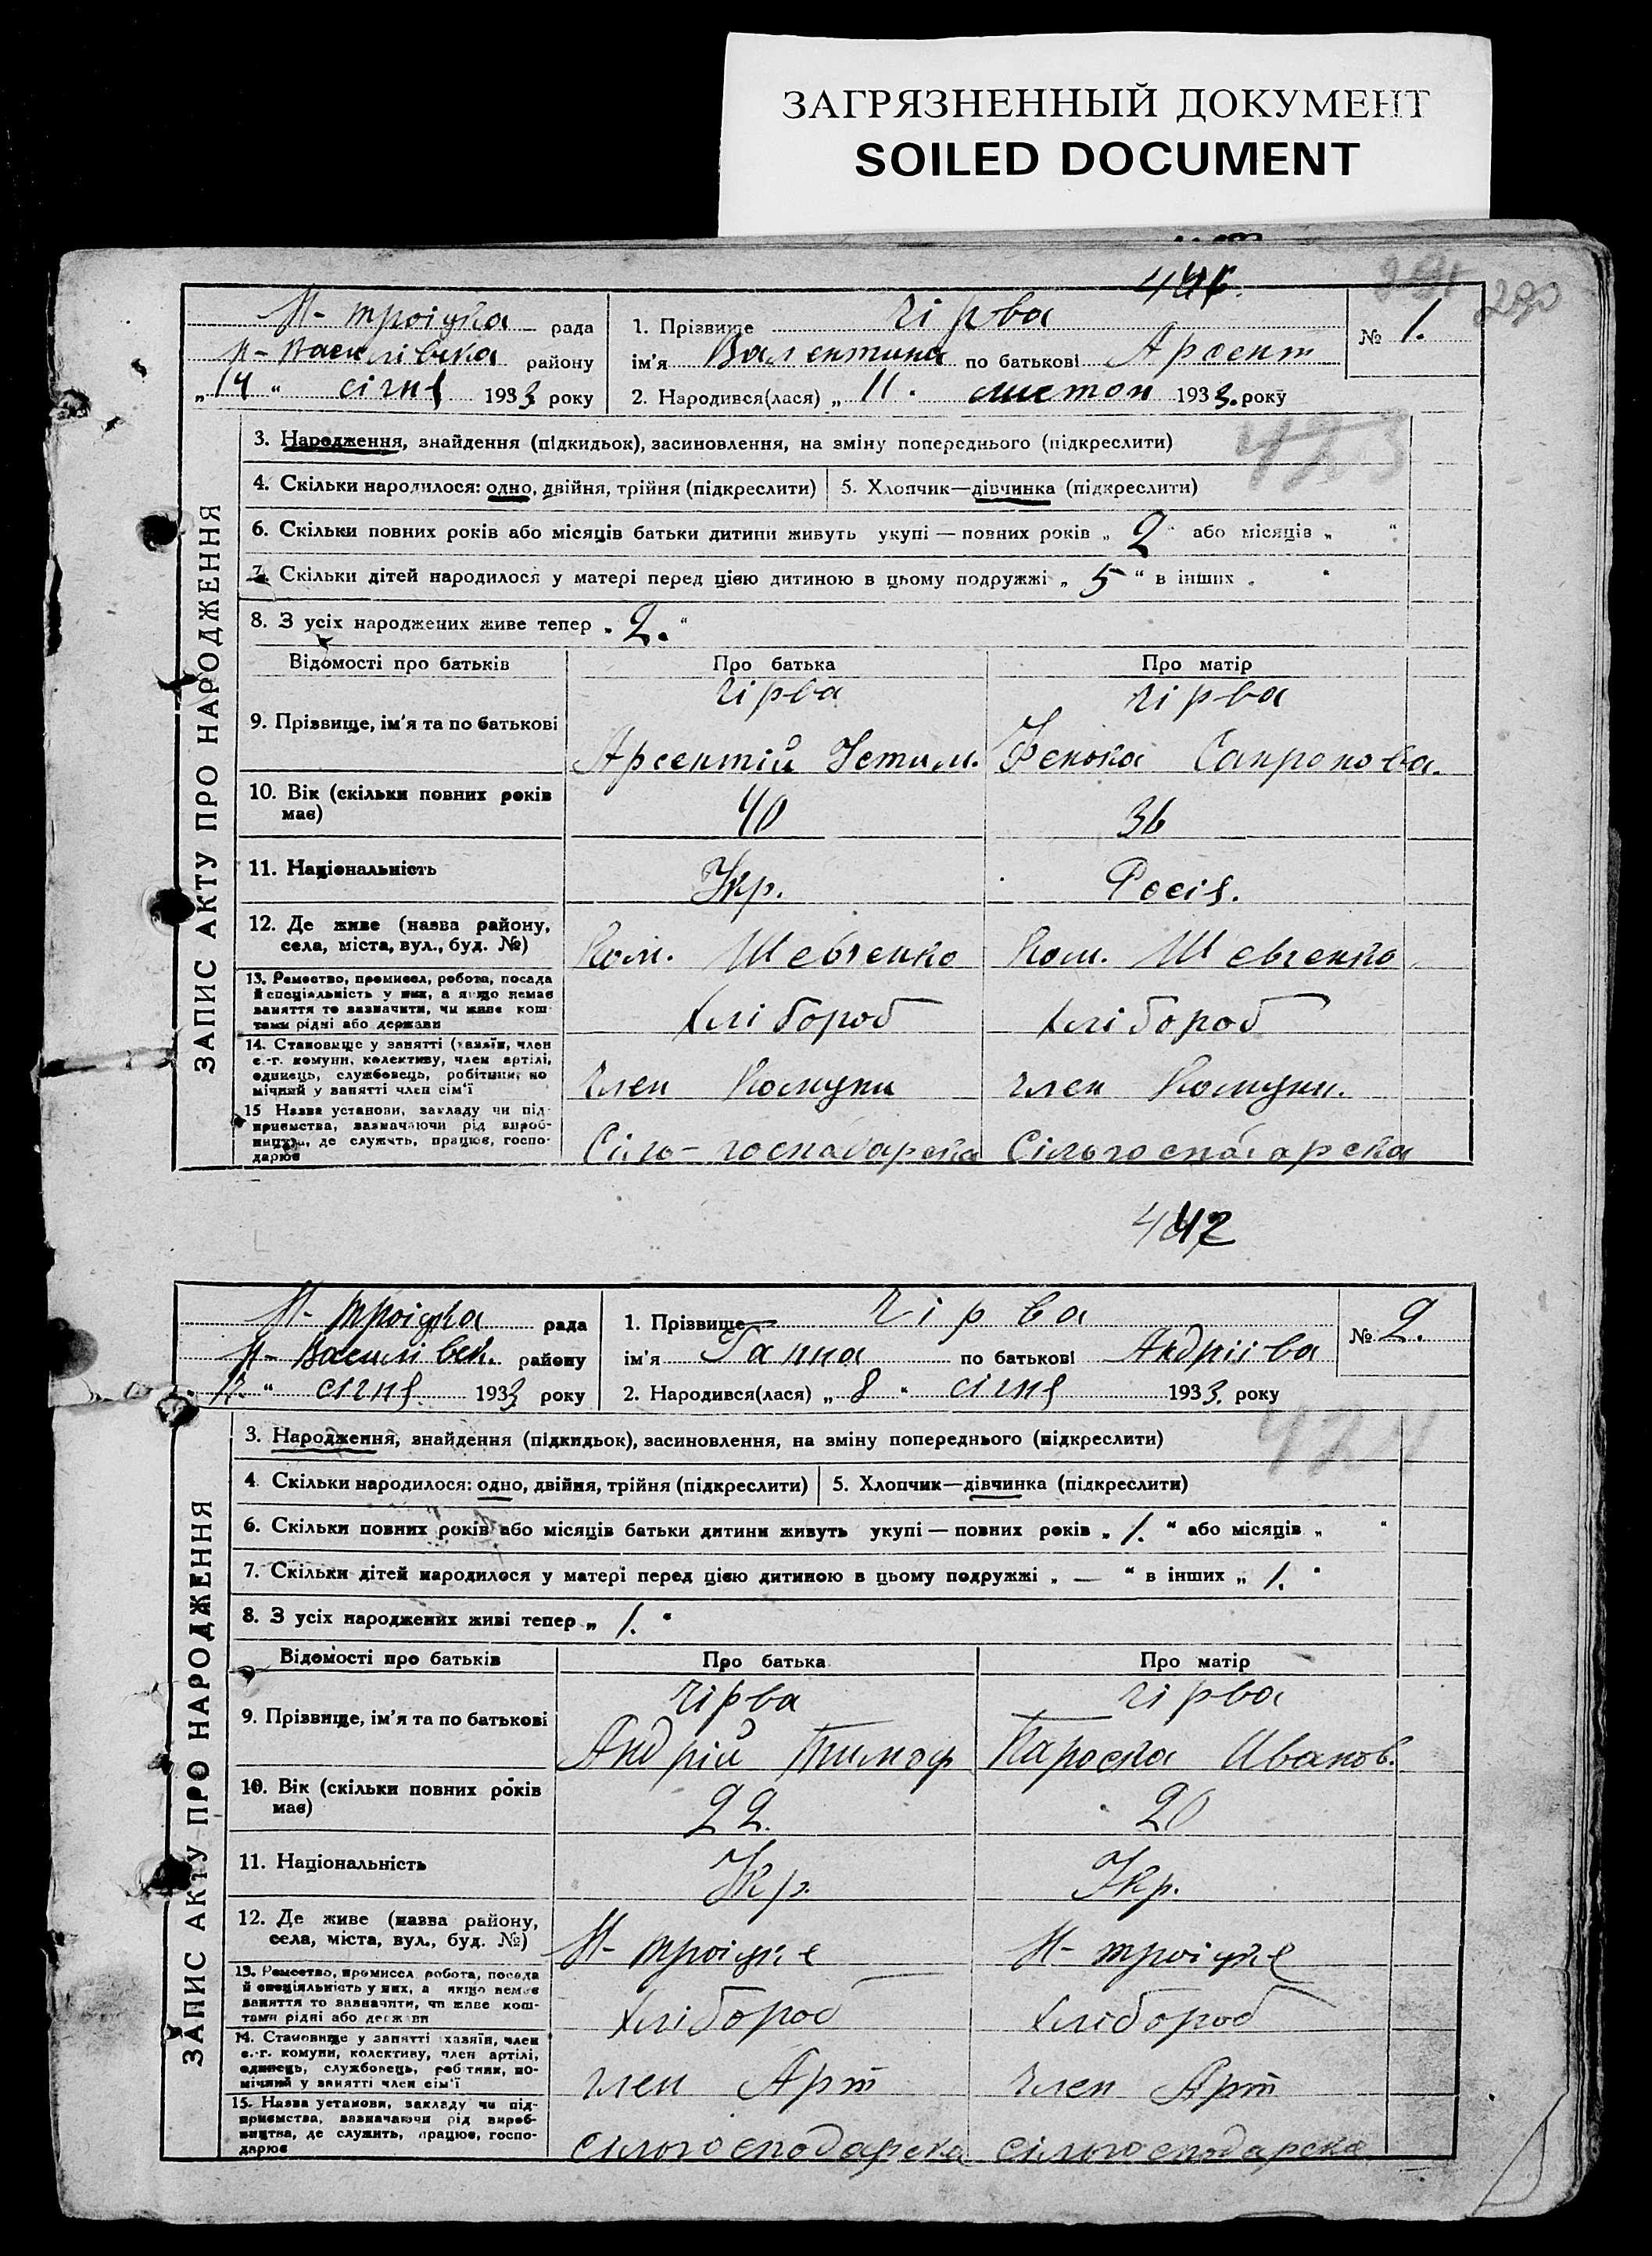 ЗАГРЯЗНЕННЫЙ ДОКУМЕНТ
SOILED DOCUMENT
290
ЗАПИС АКТУ ПРО НАРОДЖЕННЯ
Н-троіцка рада
Н-Василівска району
„14“ січня 1933 року
1. Прізвище Чірва
ім'я Валентина по батькові Арсент
2. Народився(лася) „11. листоп 1933. року
№ 1.
423
3. Народження, знайдення (підкидьок), засиновлення, на зміну попереднього (підкреслити)
4. Скільки народилося: одно, двійня, трійня (підкреслити)
5. Хлопчик—дівчинка (підкреслити)
6. Скільки повних років або місяців батьки дитини живуть укупі — повних років „2“ або місяців „ “
7. Скільки дітей народилося у матері перед цією дитиною в цьому подружжі „5“ в інших „ “
8. З усіх народжених живе тепер „2.“
Відомості про батьків Про батька Про матір
Чірва Чірва
9. Прізвище, ім'я та по батькові Арсентій Устим. Фенька Сапронова.
10. Вік (скільки повних років
має) 40 36
11. Національність Укр. Росія.
12. Де живе (назва району,
села, міста, вул., буд. №) Ком. Шевченко Ком. Шевченко
13. Ремество, промисел, робота, посада
й спеціяльність у них, а якщо немає
заняття то зазначити, чи живе кош-
тами рідні або держави Хлібороб Хлібороб
14. Становище у занятті (хазяїн, член
с.-г. комуни, колективу, член артілі,
одинець, службовець, робітник, по-
мічний у занятті член сім'ї Член Комуни Член Комуни.
15 Назва установи, закладу чи під-
приємства, зазначаючи рід вироб-
ництва, де служить, працює, госпо-
дарює Сіль-госпадарска Сільгоспадарска
442
ЗАПИС АКТУ ПРО НАРОДЖЕННЯ
Н-троіцка рада
Н-Василівск. району
“ січня 1933 року
1. Прізвище Чірва
ім'я Ганна по батькові Андріівa
2. Народився(лася) „8“ січня 1933. року
№ 2.
424
3. Народження, знайдення (підкидьок), засиновлення, на зміну попереднього (підкреслити)
4. Скільки народилося: одно, двійня, трійня (підкреслити)
5. Хлопчик—дівчинка (підкреслити)
6. Скільки повних років або місяців батьки дитини живуть укупі — повних років „1.“ або місяців „ “
7. Скільки дітей народилося у матері перед цією дитиною в цьому подружжі „—“ в інших „1.“
8. З усіх народжених живі тепер „1.“
Відомості про батьків Про батька Про матір
Чірва Чірва
9. Прізвище, ім'я та по батькові Андрій Тимоф Параска Иванов.
10. Вік (скільки повних років
має) 22. 20
11. Національність Укр. Укр.
12. Де живе (назва району,
села, міста, вул., буд. №) Н-троіцке Н-троіцке
13. Ремество, промисел робота, посада
й спеціяльність у них, а якщо немає
заняття то зазначити, чи живе кош-
тами рідні або держави Хлібороб Хлібороб
14. Становище у занятті хазяїн, член
с.-г. комуни, колективу, член артілі,
одинець, службовець, робітник, по-
мічний у занятті член сім'ї Член Арт Член Арт
15. Назва установи, закладу чи під-
приємства, зазначаючи рід вироб-
ництва, де служить, працює, госпо-
дарює Сільгосподарска Сільгосподарска